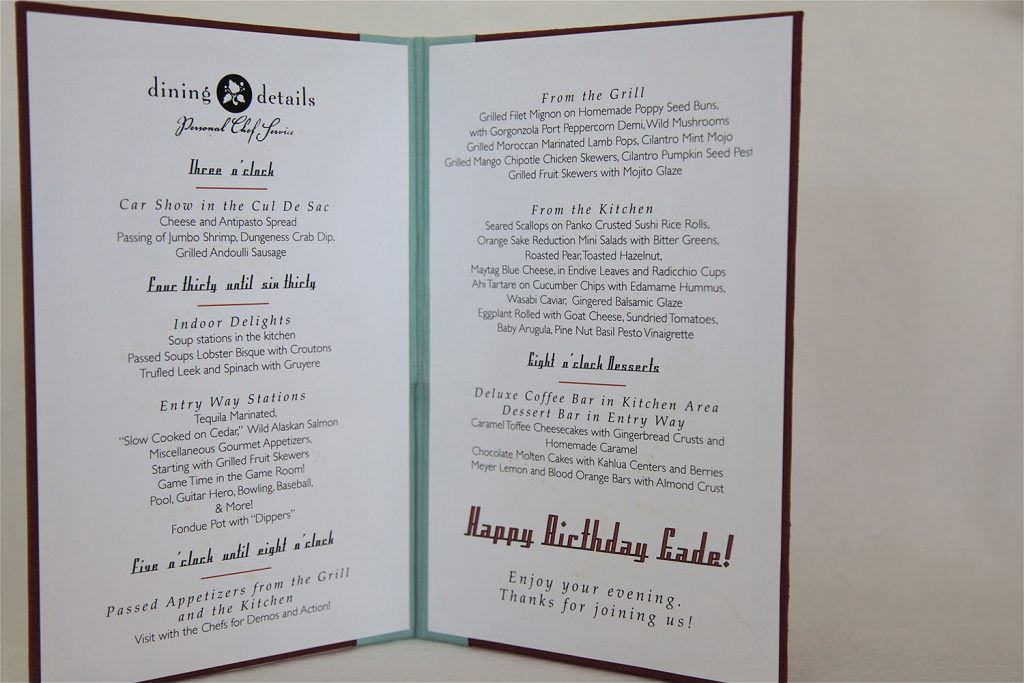 dining details
Personal Chef Service
Three o'clock
Car Show in the Cul De Sac
Cheese and Antipasto Spread
Passing of Jumbo Shrimp, Dungeness Crab Dip,
Grilled Andoulli Sausage
Four thirty until six thirty
Indoor Delights
Soup stations in the kitchen
Passed Soups Lobster Bisque with Croutons
Trufled Leek and Spinach with Gruyere
Entry Way Stations
Tequila Marinated,
"Slow Cooked on Cedar," Wild Alaskan Salmon
Miscellaneous Gourmet Appetizers,
Starting with Grilled Fruit Skewers
Game Time in the Game Room!
Pool, Guitar Hero, Bowling, Baseball,
& More!
Fondue Pot with "Dippers"
Five o'clock until eight o'clock
Passed Appetizers from the Grill
and the Kitchen
Visit with the Chefs for Demos and Action!
From the Grill
Grilled Filet Mignon on Homemade Poppy Seed Buns,
with Gorgonzola Port Peppercorn Demi, Wild Mushrooms
Grilled Moroccan Marinated Lamb Pops, Cilantro Mint Mojo
Grilled Mango Chipotle Chicken Skewers, Cilantro Pumpkin Seed Pest
Grilled Fruit Skewers with Mojito Glaze
From the Kitchen
Seared Scallops on Panko Crusted Sushi Rice Rolls,
Orange Sake Reduction Mini Salads with Bitter Greens,
Roasted Pear, Toasted Hazelnut,
Maytag Blue Cheese, in Endive Leaves and Radicchio Cups
Ahi Tartare on Cucumber Chips with Edamame Hummus,
Wasabi Caviar, Gingered Balsamic Glaze
Eggplant Rolled with Goat Cheese, Sundried Tomatoes,
Baby Arugula, Pine Nut Basil Pesto Vinaigrette
Eight o'clock Desserts
Deluxe Coffee Bar in Kitchen Area
Dessert Bar in Entry Way
Caramel Toffee Cheesecakes with Gingerbread Crusts and
Homemade Caramel
Chocolate Molten Cakes with Kahlua Centers and Berries
Meyer Lemon and Blood Orange Bars with Almond Crust
Happy Birthday Eade!
Enjoy your evening.
Thanks for joining us!